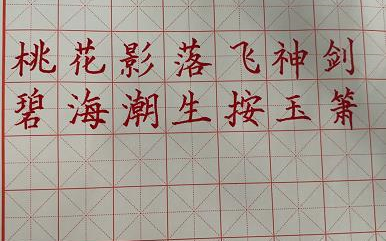 桃花影落飞神剑
碧海潮生按玉箫